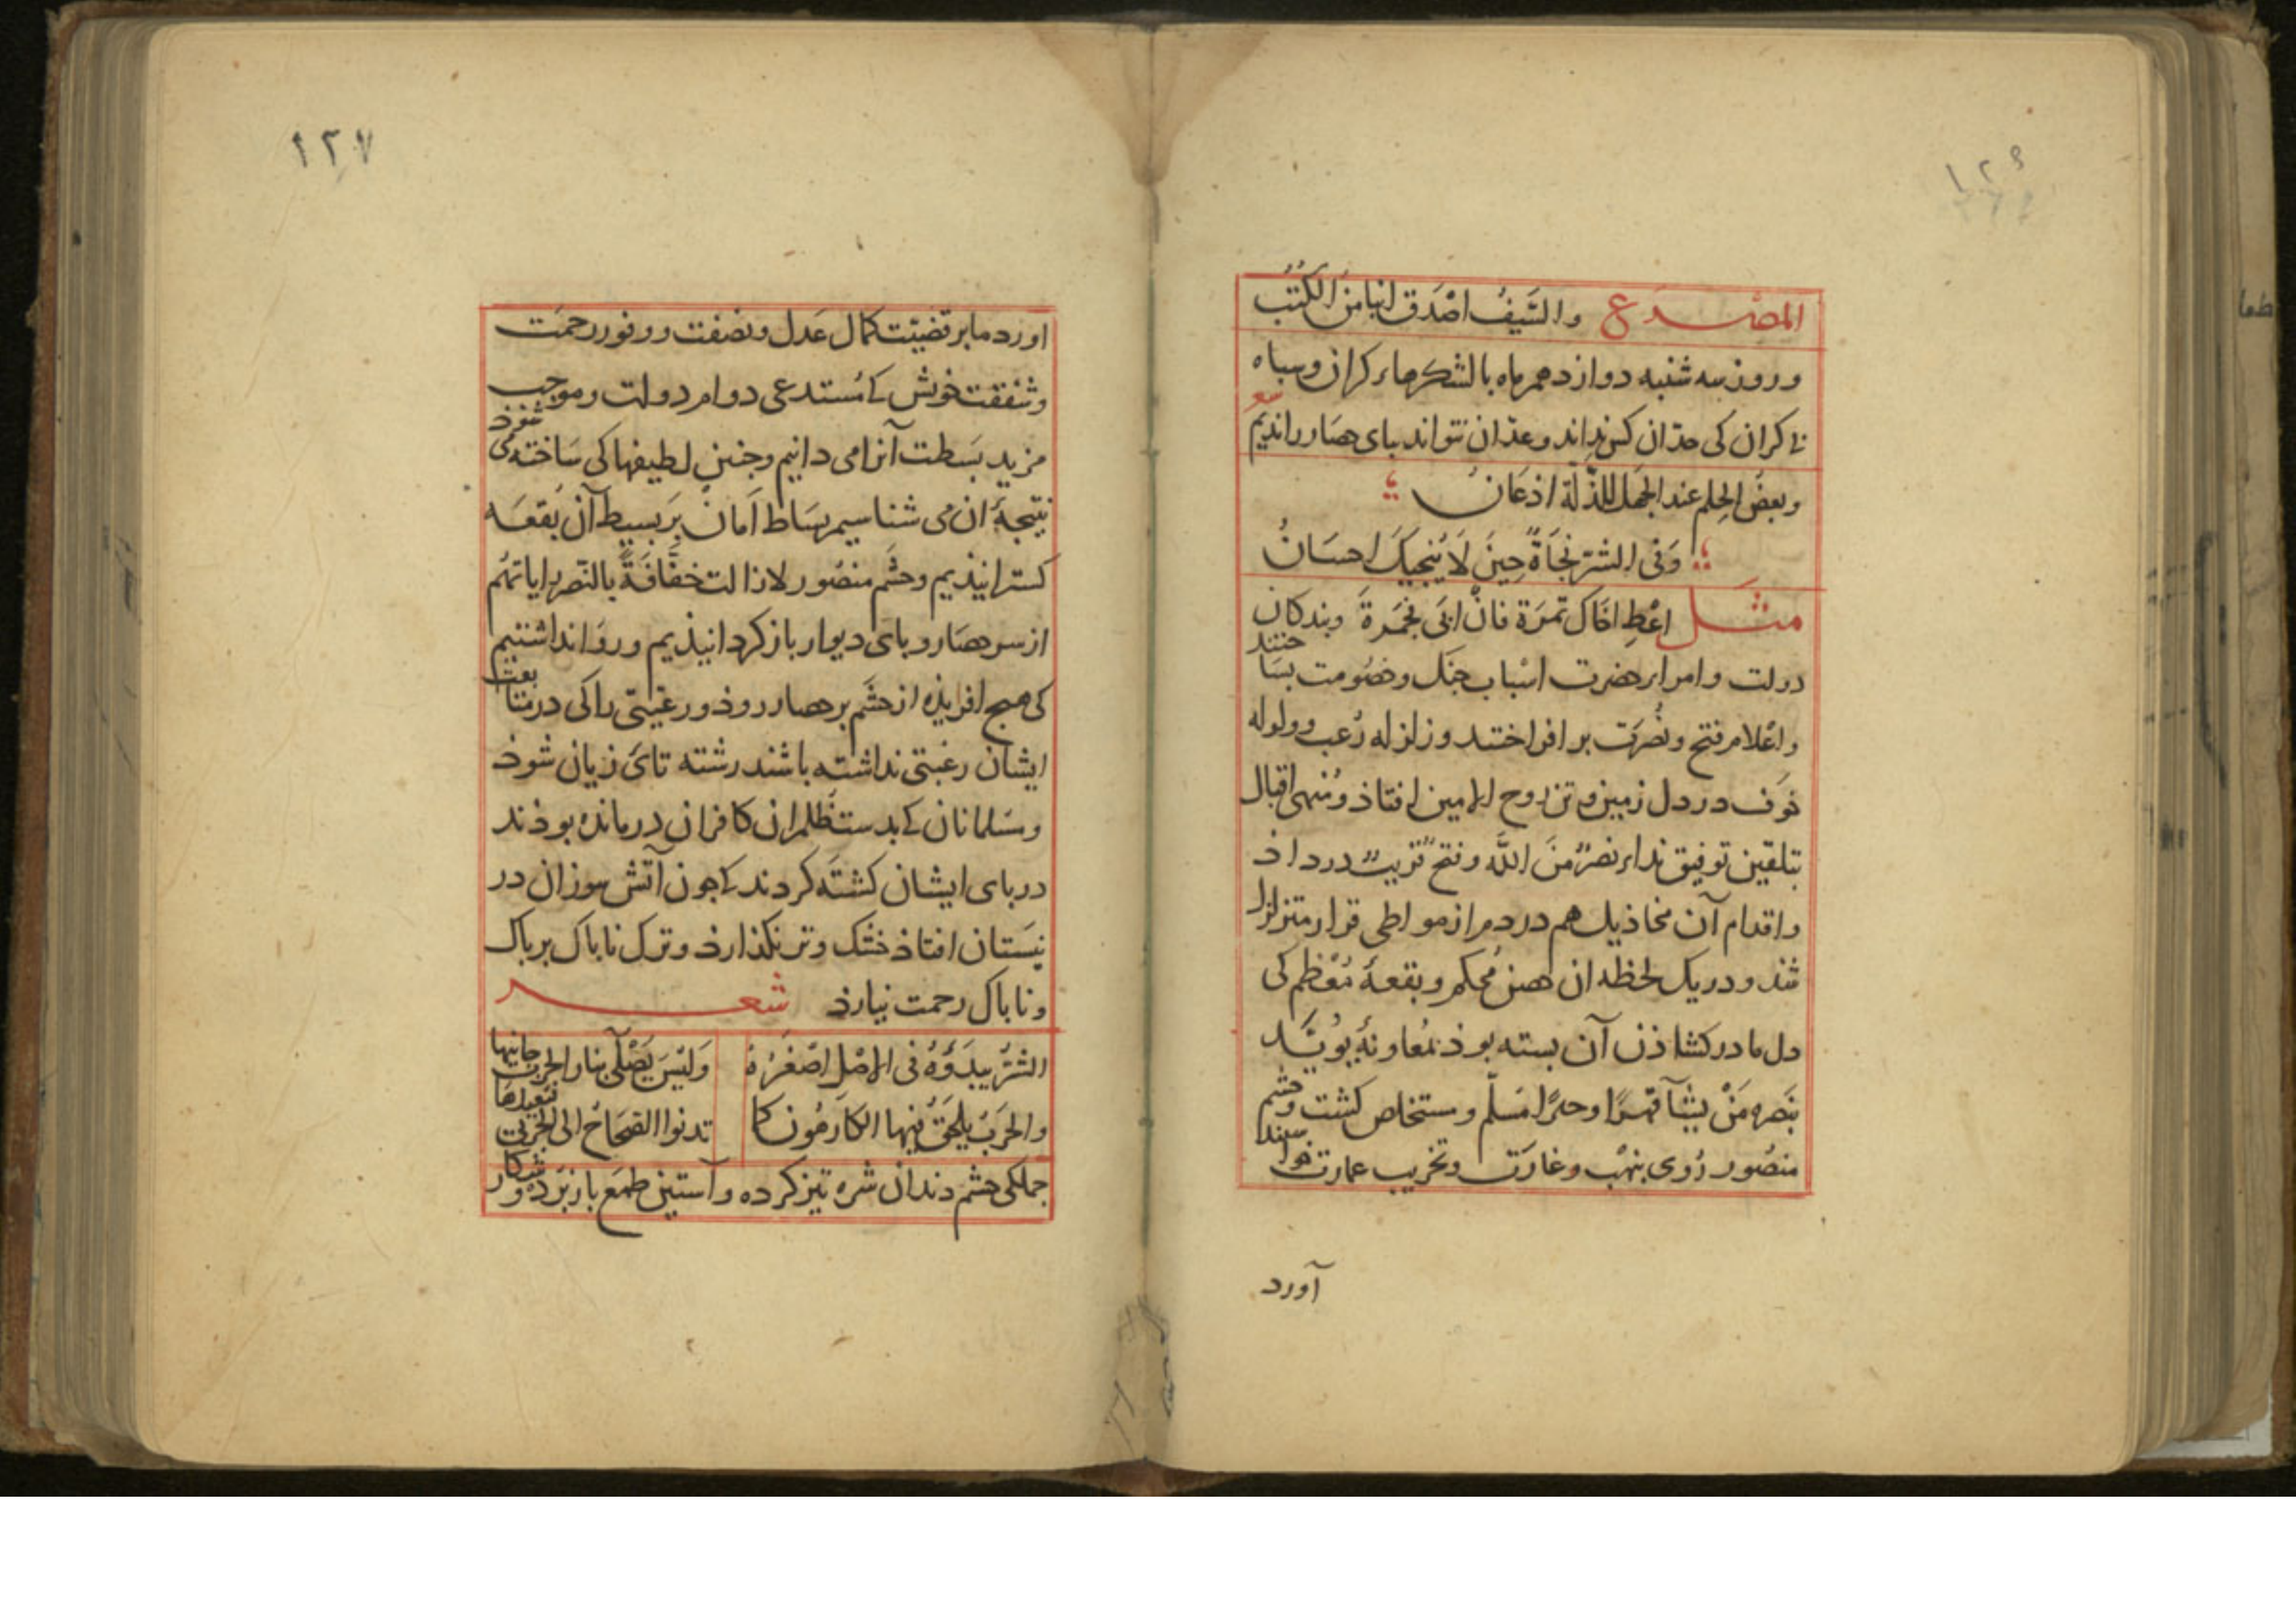 ١٢٦
المصــــرع والسَّيفُ اصْدَق انبا منَ الكُتُب
و روز سه شنبه دوازدهم ماه بالشكرهاء كران وسباه
نا كران كى حدّان كس نداند وعدّان نتواند بباى حصَار راندیم
شعر
وبعضُ الحِلم عند الجَهل للذِّلَّة اذعَانُ
وَفى الشرّ نجَاةٌ حِينَ لَا يُنجِيكَ احسَانُ
مثــل اعْطِ اخَاكَ تمرَة فانْ ابَى فجَمرةَ وبندكان
دولت وامراء حضرت اسْباب جنك وخصُومت بسَاختند
واعْلام فتح ونُصْرَت بر افراختند وزلزله رُعب و ولوله
خوَف در دل زمين وتن روح الامين افتاذ ومُنهى اقبال
بتلقين توفيق نداء نصرٌ منَ اللَّه وفتحٌ قريبٌ در داذ
واقدام آن مخاذيل هم در دم از مواطى قرار متزلزل
شد و در يك لحظه ان حصن مُحكم وبقعهٔ مُعْظم كى
دل مادر كشاذن آن بسته بوذ بمُعاونةِ يُويّــد
بنَصرهِ مَنْ يشآ قهرًا وجبرًا مُسَلّم ومستخلص كشت وحشم
منصُور رُوى بنهْب وغارَت وتخريب عمارت نهاوند
آورد
١٢٧
اورد مابر قضيّت كمال عَدل ونصَفت و وفور رحمَت
وشفقت خوش كے مُستدعى دوام دولت وموجب
مزيد بَسطت آنرا مى دانيم وجنين لطيفها كى سَاخته مى شوذ
نتيجهٔ ان مى شناسيم بسَاط اَمان بَر بسيط آن بُقعَه
كسترانيذيم وحشَم منصُور لازالت خفَّافَةً بالنّصر راياتهُم
از سر حصَار وباى ديوار باز كردانيذيم و روَا نداشتيم
كى هيج افريذه از حشَم بر حصار روذ ورعيتى را كى در متابعت
ايشان رغبتى نداشته باشند رشته تاى زيان شوذ
ومسَلمانان كے بدست ظلم ان كافران درمانده بوذند
در باى ايشان كشتَه كردند كے جون آتش سوزان در
نيسَتان افتاذ خشك وتر نكذارذ وترك ناباك بر باك
وناباك رحمت نيارذ شعــــر
الشرُّ يبدَؤُهُ فى الاصْلِ اصْغَرُهُ وَلَيْسَ يَصْلَى بنار الحَرْبِ جانيها
والحَربُ يلحَقُ فيها الكارهُون كما تدنوا الصّحَاحُ الى الجَربَى فتُعْديهَا
جملكى حشم دندان شره تيز كرده وآستين طمَع بازبَرده وَ